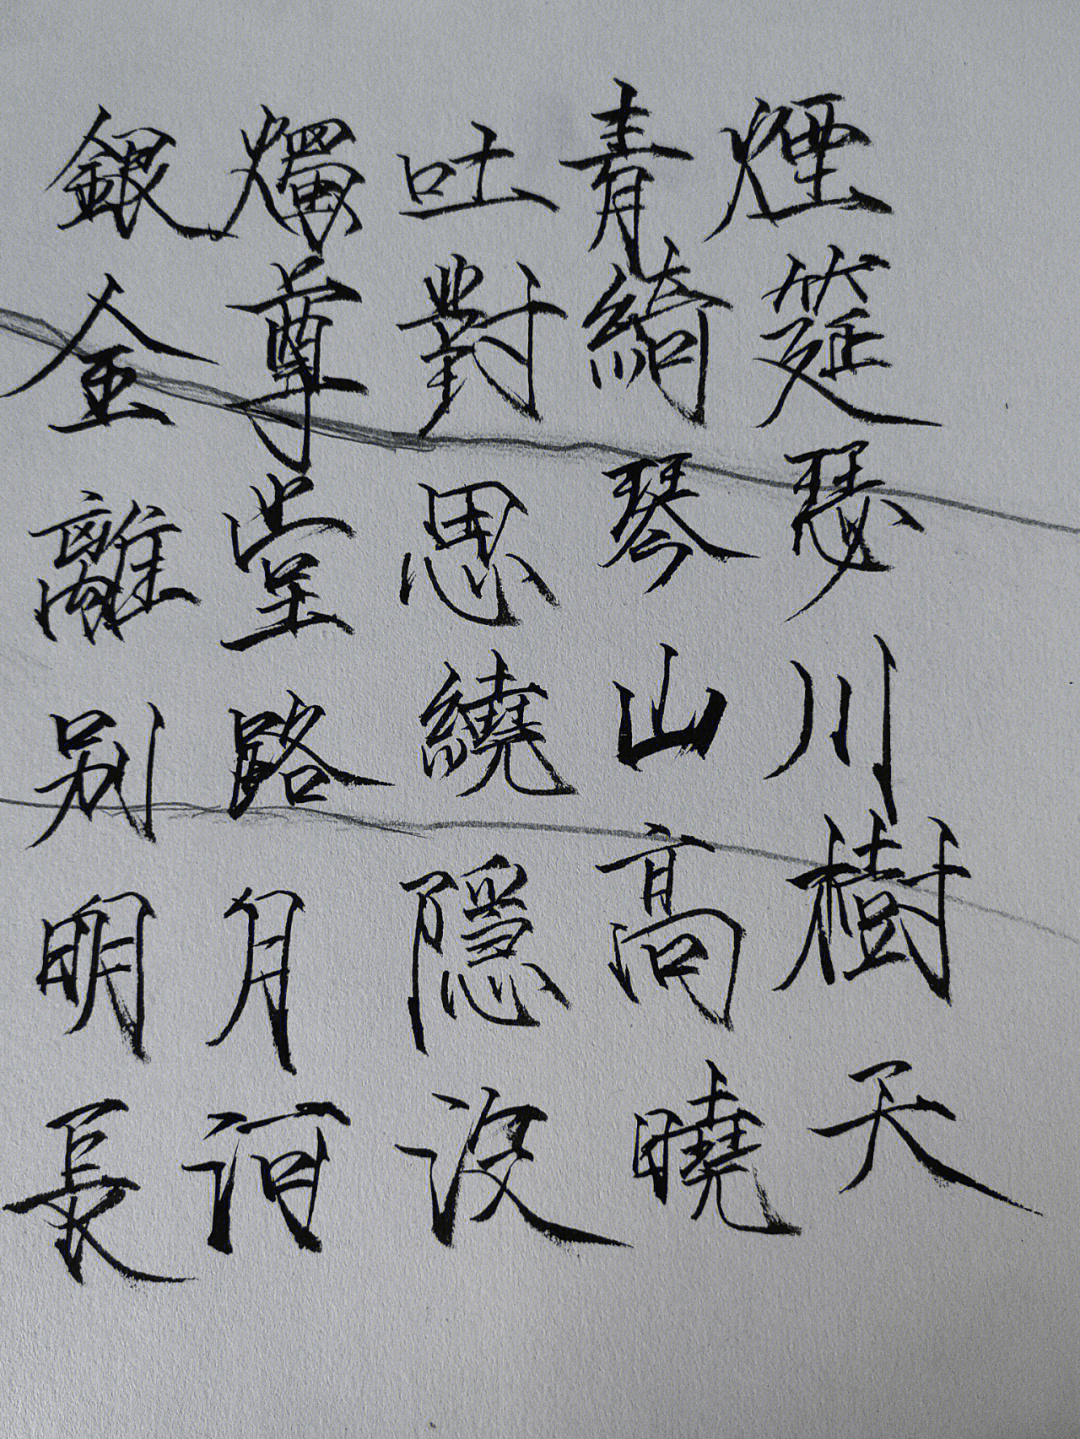 銀燭吐青煙
金尊對綺筵
離堂思琴瑟
别路繞山川
明月隱高樹
長河沒曉天